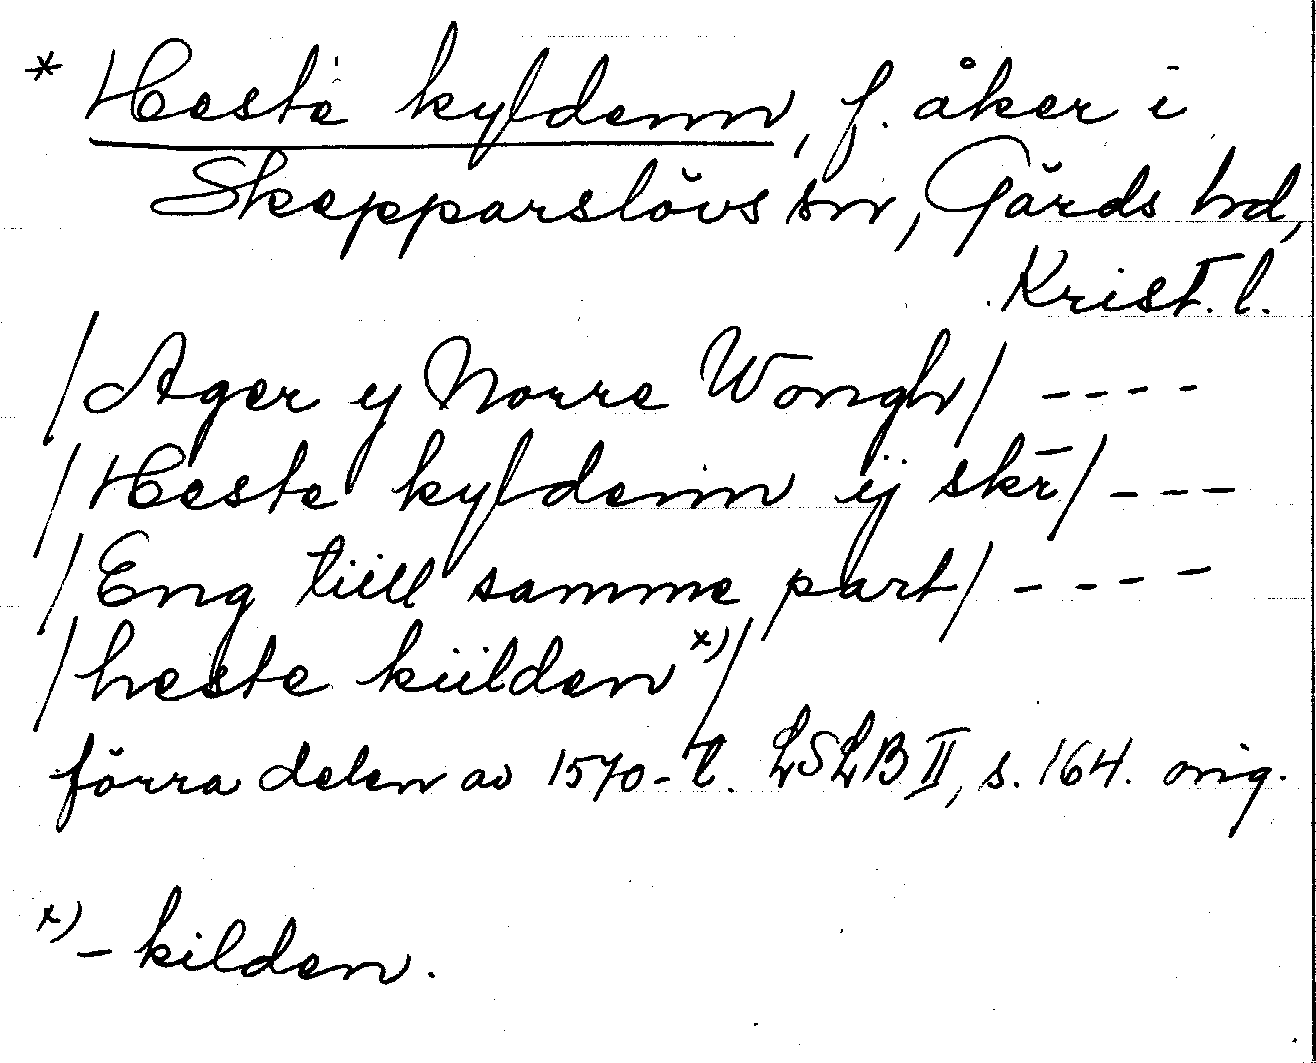 * Heste kyldenn, f. åker i
Skepparslövs sn, Gärds hd,
Krist. l.
/Ager ij Norre Wongh/ ----
/Heste kyldenn ij skr̄/ ---
/Eng tiill samme part/ ----
/heste kiilden x)/
förra delen av 1570-t. LSLB II, s. 164. orig.
x) - kilden.